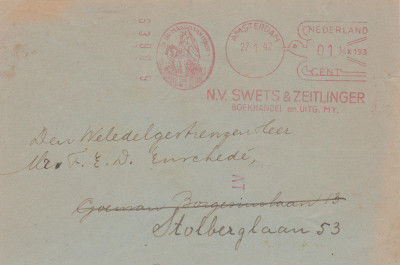 AMSTERDAM
27.1.42
NEDERLAND
01½
CENT
N.V. SWETS & ZEITLINGER
BOEKHANDEL en UITG. MY.
Den Weledelgestrengen Heer
Mr. F. E. D. Enschedé,
Goeman Borgesiuslaan 13
Stolberglaan 53